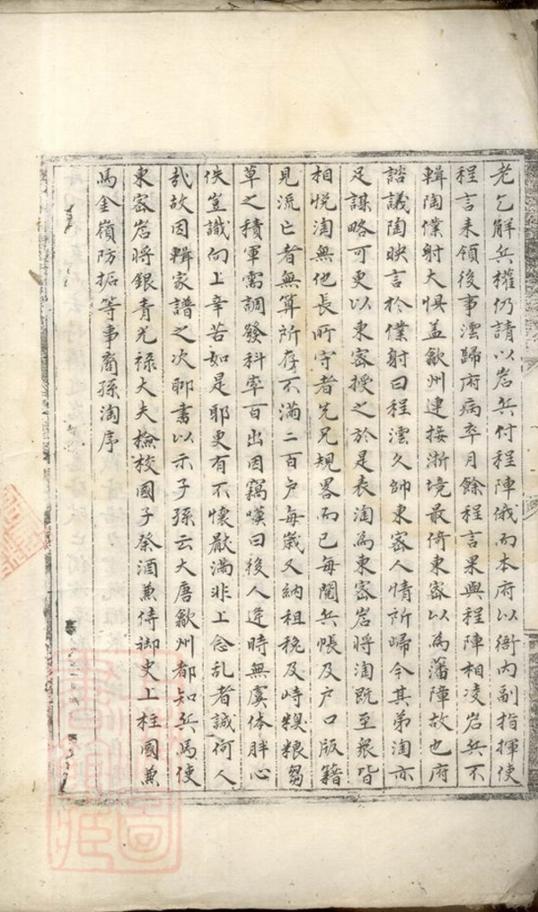 老乞解兵權仍請以岩兵付程陣俄而本府以衙內副指揮使
程言来領後事澐歸府病卒月餘程言果與程陣相凌岩兵不
輯陶僕射大惧盖歙州連接淅境最倚東宻以為藩障故也府
諮議陶映言於僕射曰程澐久帥東宻人情所歸今其弟淘亦
足謀略可更以東宻授之於是表淘為東宻岩將淘既至衆皆
相悦淘無他長所守者先兄規畧而已每閱兵帳及户口版籍
見流亡者無算所存不滿二百户每歲又納租稅及峙糗粮芻
草之積軍需調發科率百出因竊嘆曰後人逢時無虞体胖心
佚豈識向上辛苦如是耶更有不懷厭滿非上念乱者誠何人
㢤故因輯家譜之次聊書以示子孫云大唐歙州都知兵馬使
東宻岩將銀青光禄大夫檢校國子祭酒兼侍御史上柱國兼
馬金嶺防拒等事裔孫淘序